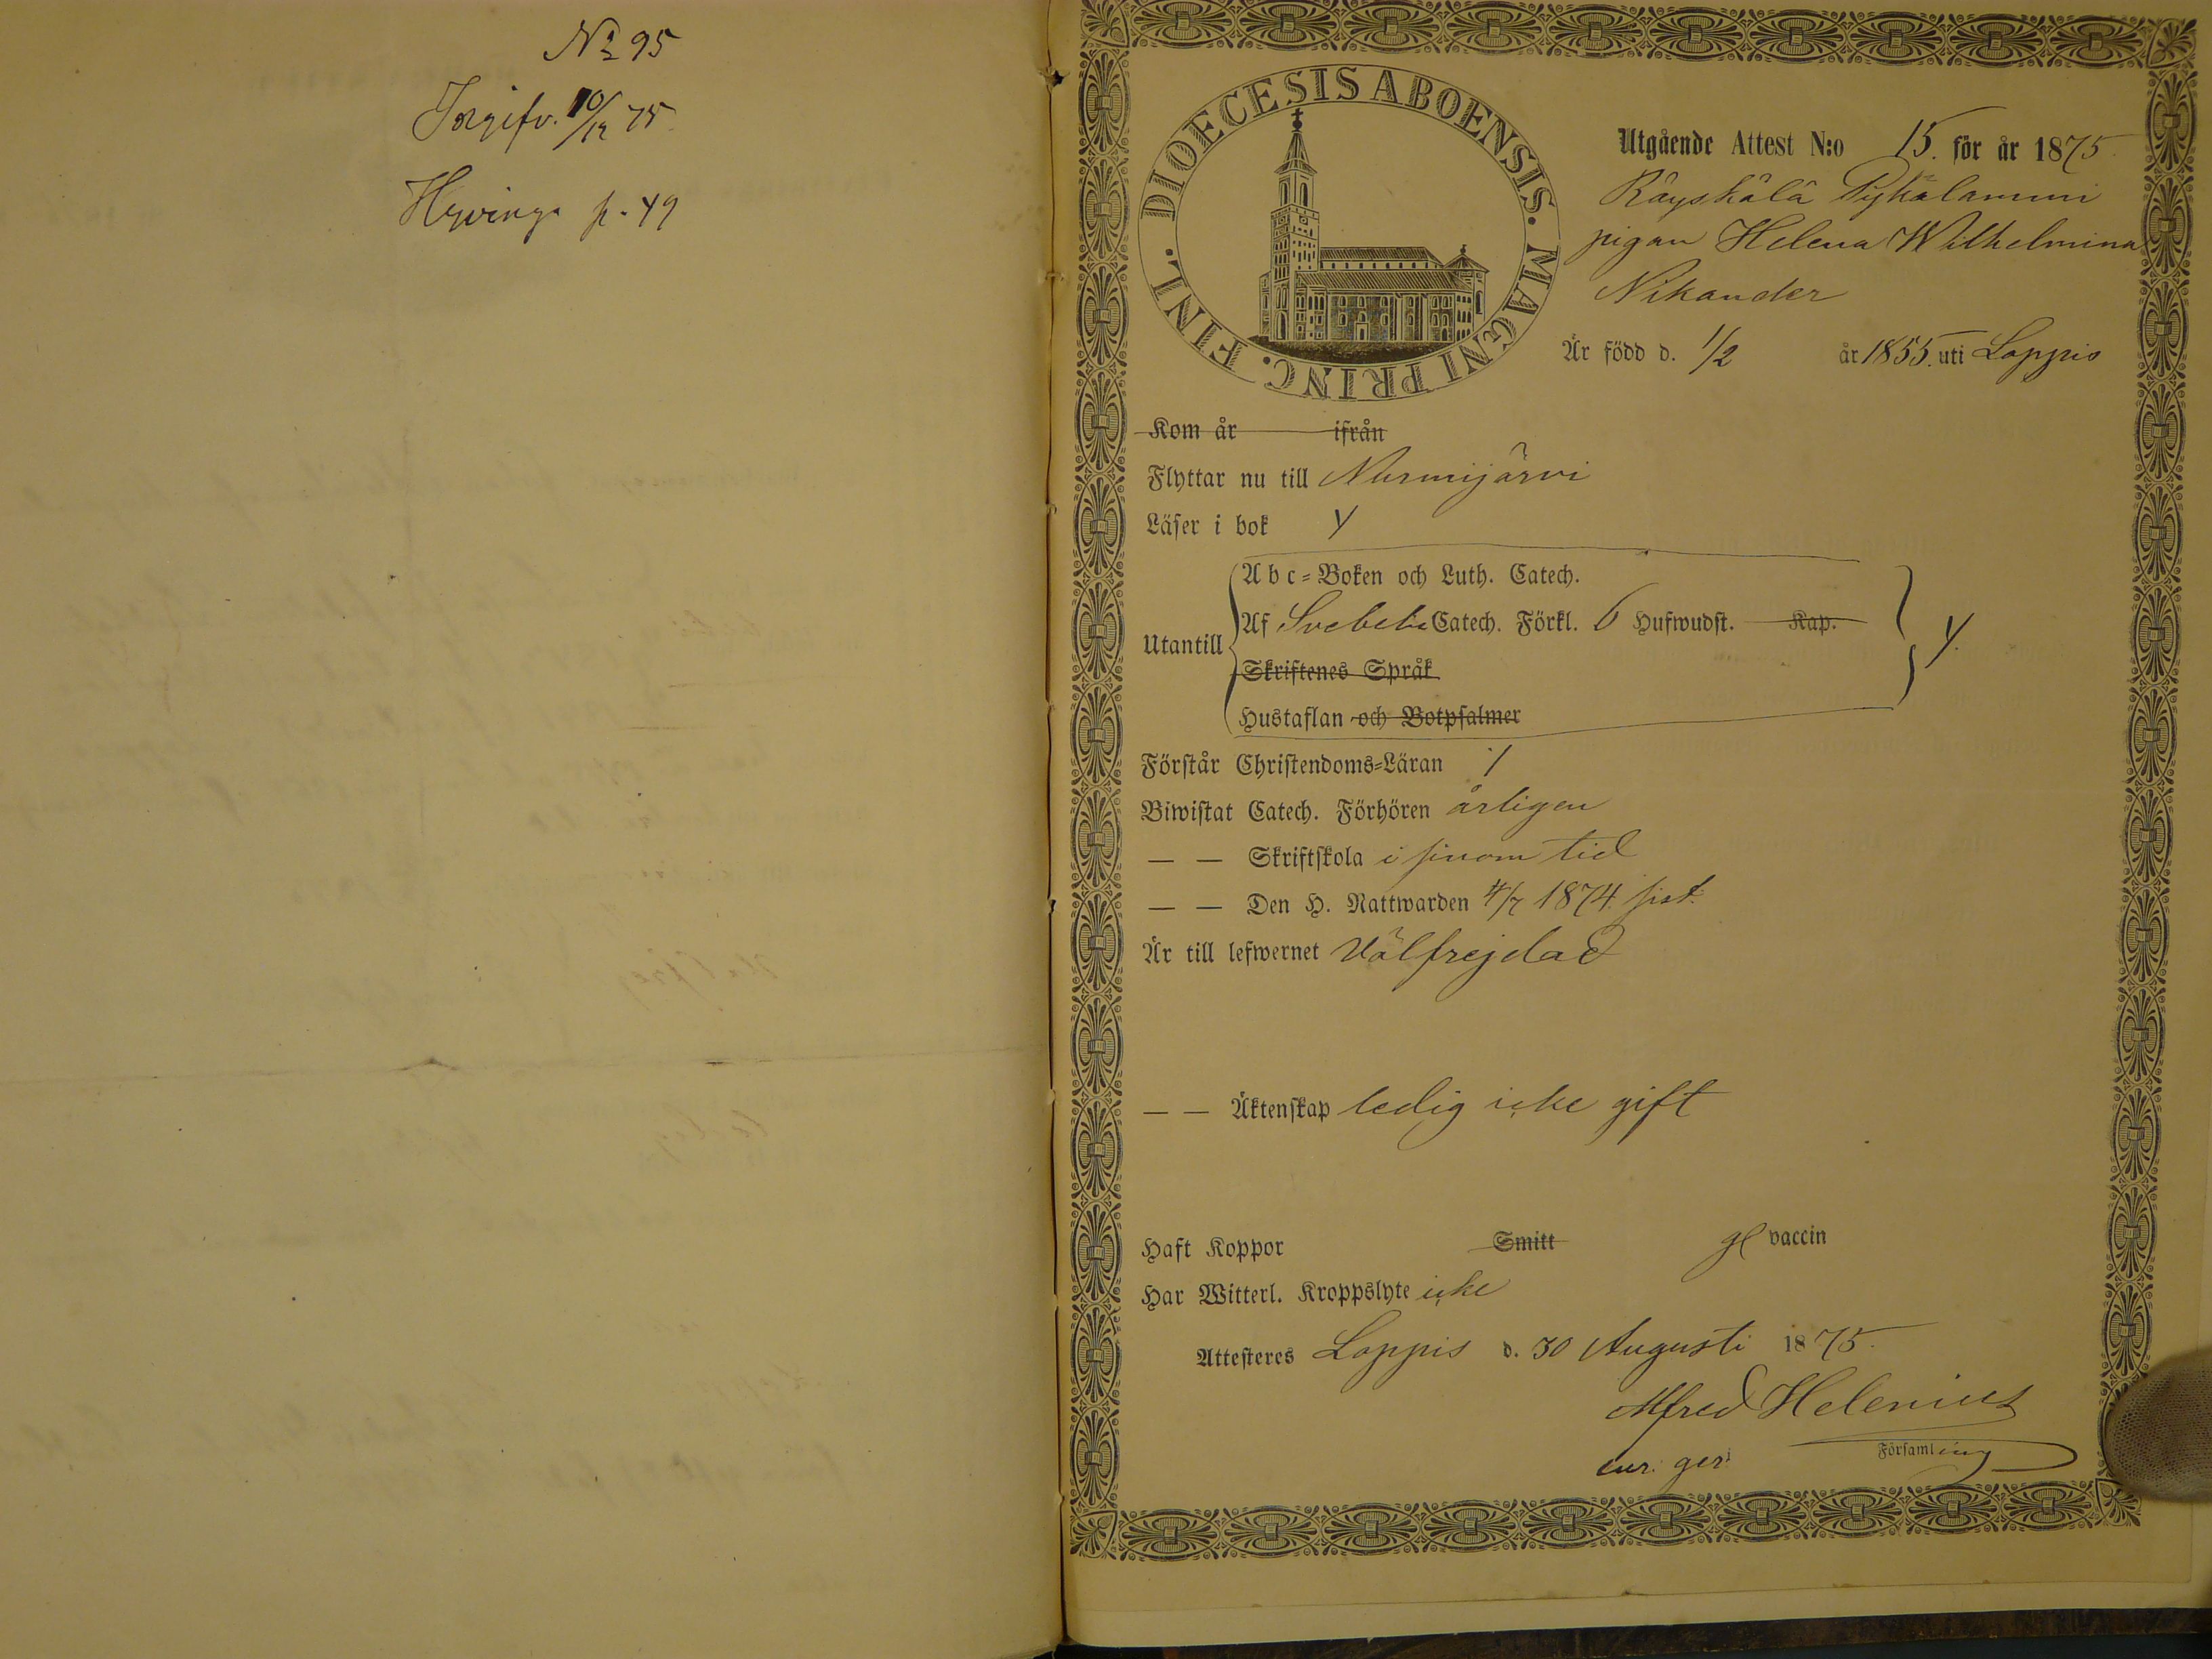 No 95
Ingifv. 10/12 75.
Hyvinge p. 49
DIOECESIS ABOENSIS. MAGNI PRINC. FINL.
Utgående Attest N:o 15. för år 1875.
Räyskälä Pykälammi
pigan Helena Wilhelmina
Nikander
Är född d. 1/2 år 1855. uti Loppis
Kom år ifrån
Flyttar nu till Nurmijärvi
Läser i bok y
Utantill
Abc-Boken och Luth. Catech.
Af Svebeli Catech. Förkl. 6 Hufwudst. Kap.
y.
Skriftenes Språk
Hustaflan och Botpsalmer
Förstår Christendoms-Läran /
Biwistat Catech. Förhören årligen
— — Skriftskola i sinom tid
— — Den H. Nattwarden 4/7 1874 sist.
Är till lefwernet Välfrejdad
— — Äktenskap ledig icke gift
Haft Koppor Smitt gl vaccin
Har Witterl. Kroppslyte icke
Attesteres Loppis d. 30 Augusti 1875.
Alfred Helenius
cur. ger. Församling